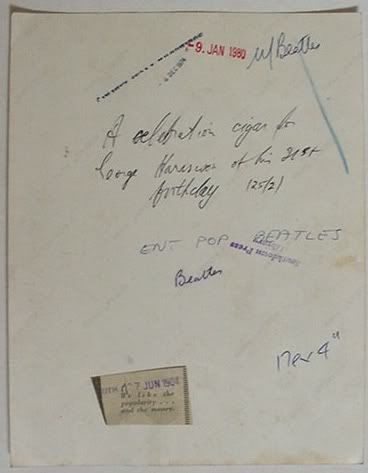 9. JAN 1980
4 DEC 1974
w/ Beatles
A celebration cigar for
George Harrison at his 21st
birthday (25/2)
ENT POP BEATLES
Southdown Press
Library
Beatles
7 JUN 1964
We like the
popularity . . .
and the money.
4"